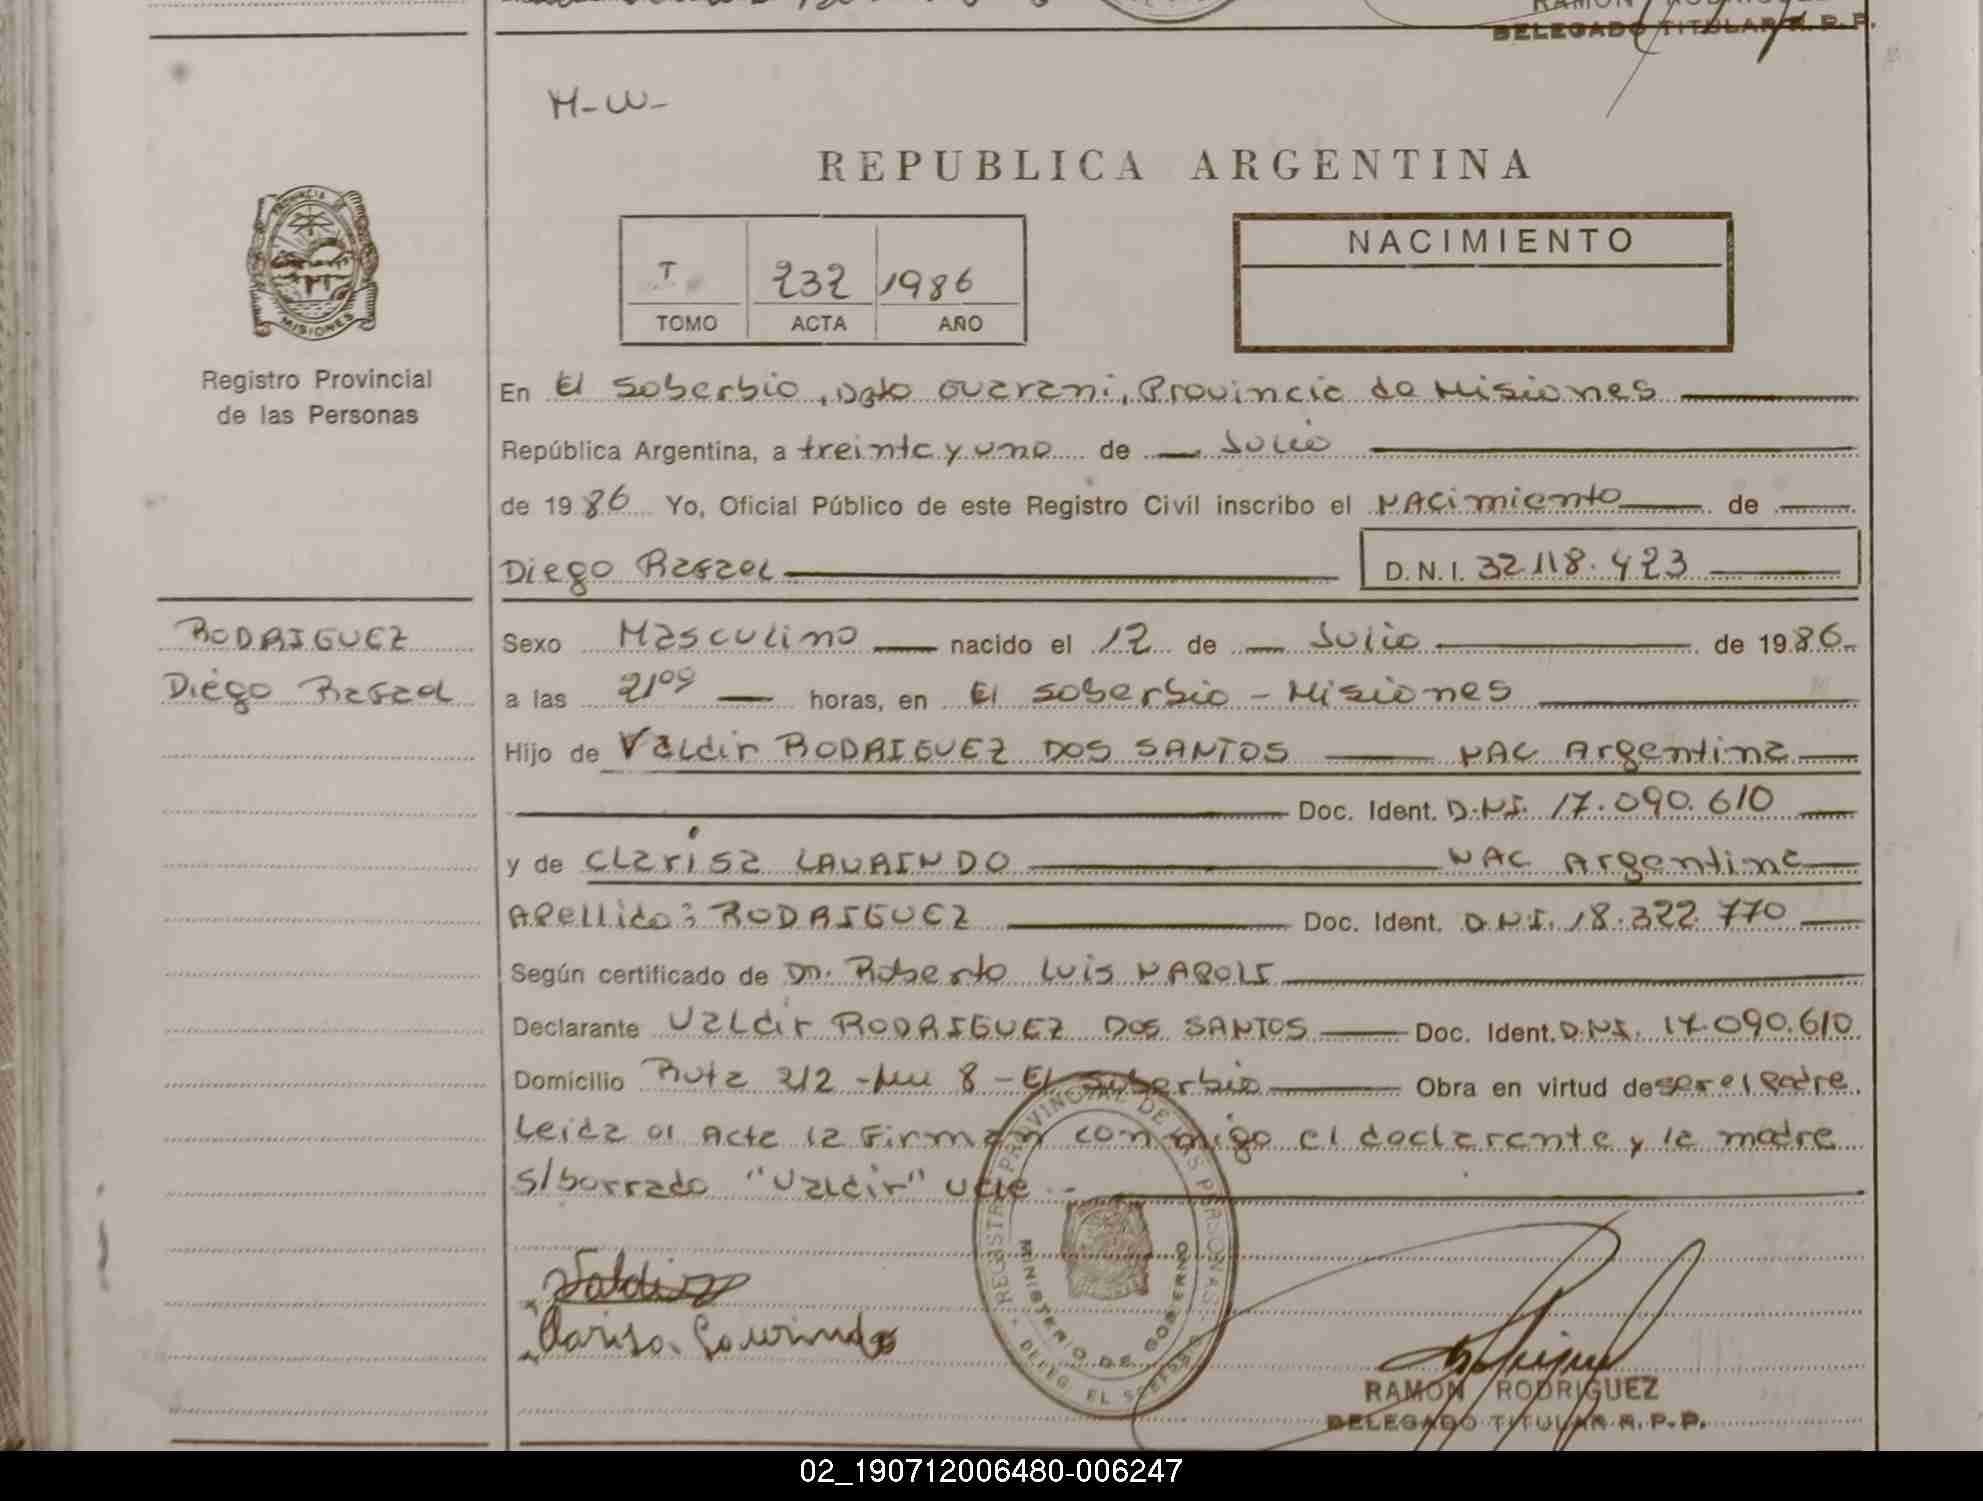 DELEGADO TITULAR R. P. P.
M-W-
REPUBLICA ARGENTINA
T 232 1986
TOMO ACTA AÑO
NACIMIENTO
PROVINCIA DE MISIONES
Registro Provincial
de las Personas
En El Soberbio, Dpto Guarani, Provincia de Misiones
República Argentina, a treinta y uno de Julio
de 1986 Yo, Oficial Público de este Registro Civil inscribo el Nacimiento de
Diego Rafael D.N.I. 32.118.423
RODRIGUEZ
Diego Rafael
Sexo Masculino nacido el 12 de Julio de 1986
a las 21⁰⁵ horas, en El Soberbio - Misiones
Hijo de Valdir RODRIGUEZ DOS SANTOS NAC Argentina
Doc. Ident. D.N.I. 17.090.610
y de Clarisa LAURINDO NAC Argentina
Apellido: RODRIGUEZ Doc. Ident. D.N.I. 18.322.770
Según certificado de Dr. Roberto Luis NAPOLI
Declarante Valdir RODRIGUEZ DOS SANTOS Doc. Ident. D.N.I. 17.090.610
Domicilio Ruta 212 - 8 - El Soberbio Obra en virtud de ser el padre
Leida el Acta la Firman conmigo el declarante y la madre
S/borrado "Valdir" Vale
REGISTRO PROVINCIAL DE LAS PERSONAS
MINISTERIO DE GOBIERNO
DELEG. EL SOBERBIO
Clarisa Laurindo
RAMON RODRIGUEZ
DELEGADO TITULAR R. P. P.
02_190712006480-006247